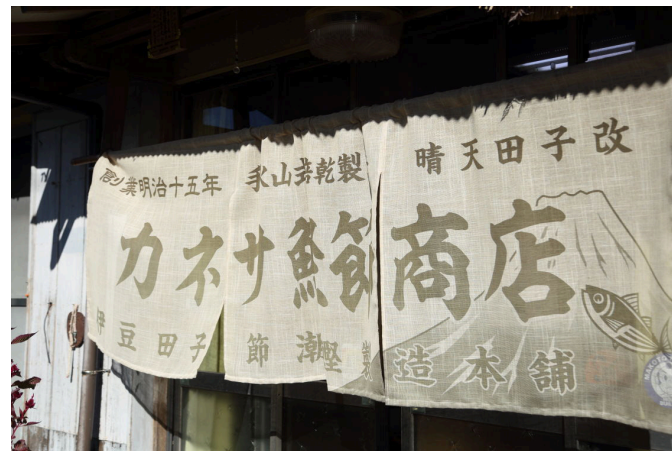 創業明治十五年 山 乾製 晴天田子改
カネサ鰹節商店
伊豆田子節 潮鰹 製造本舗